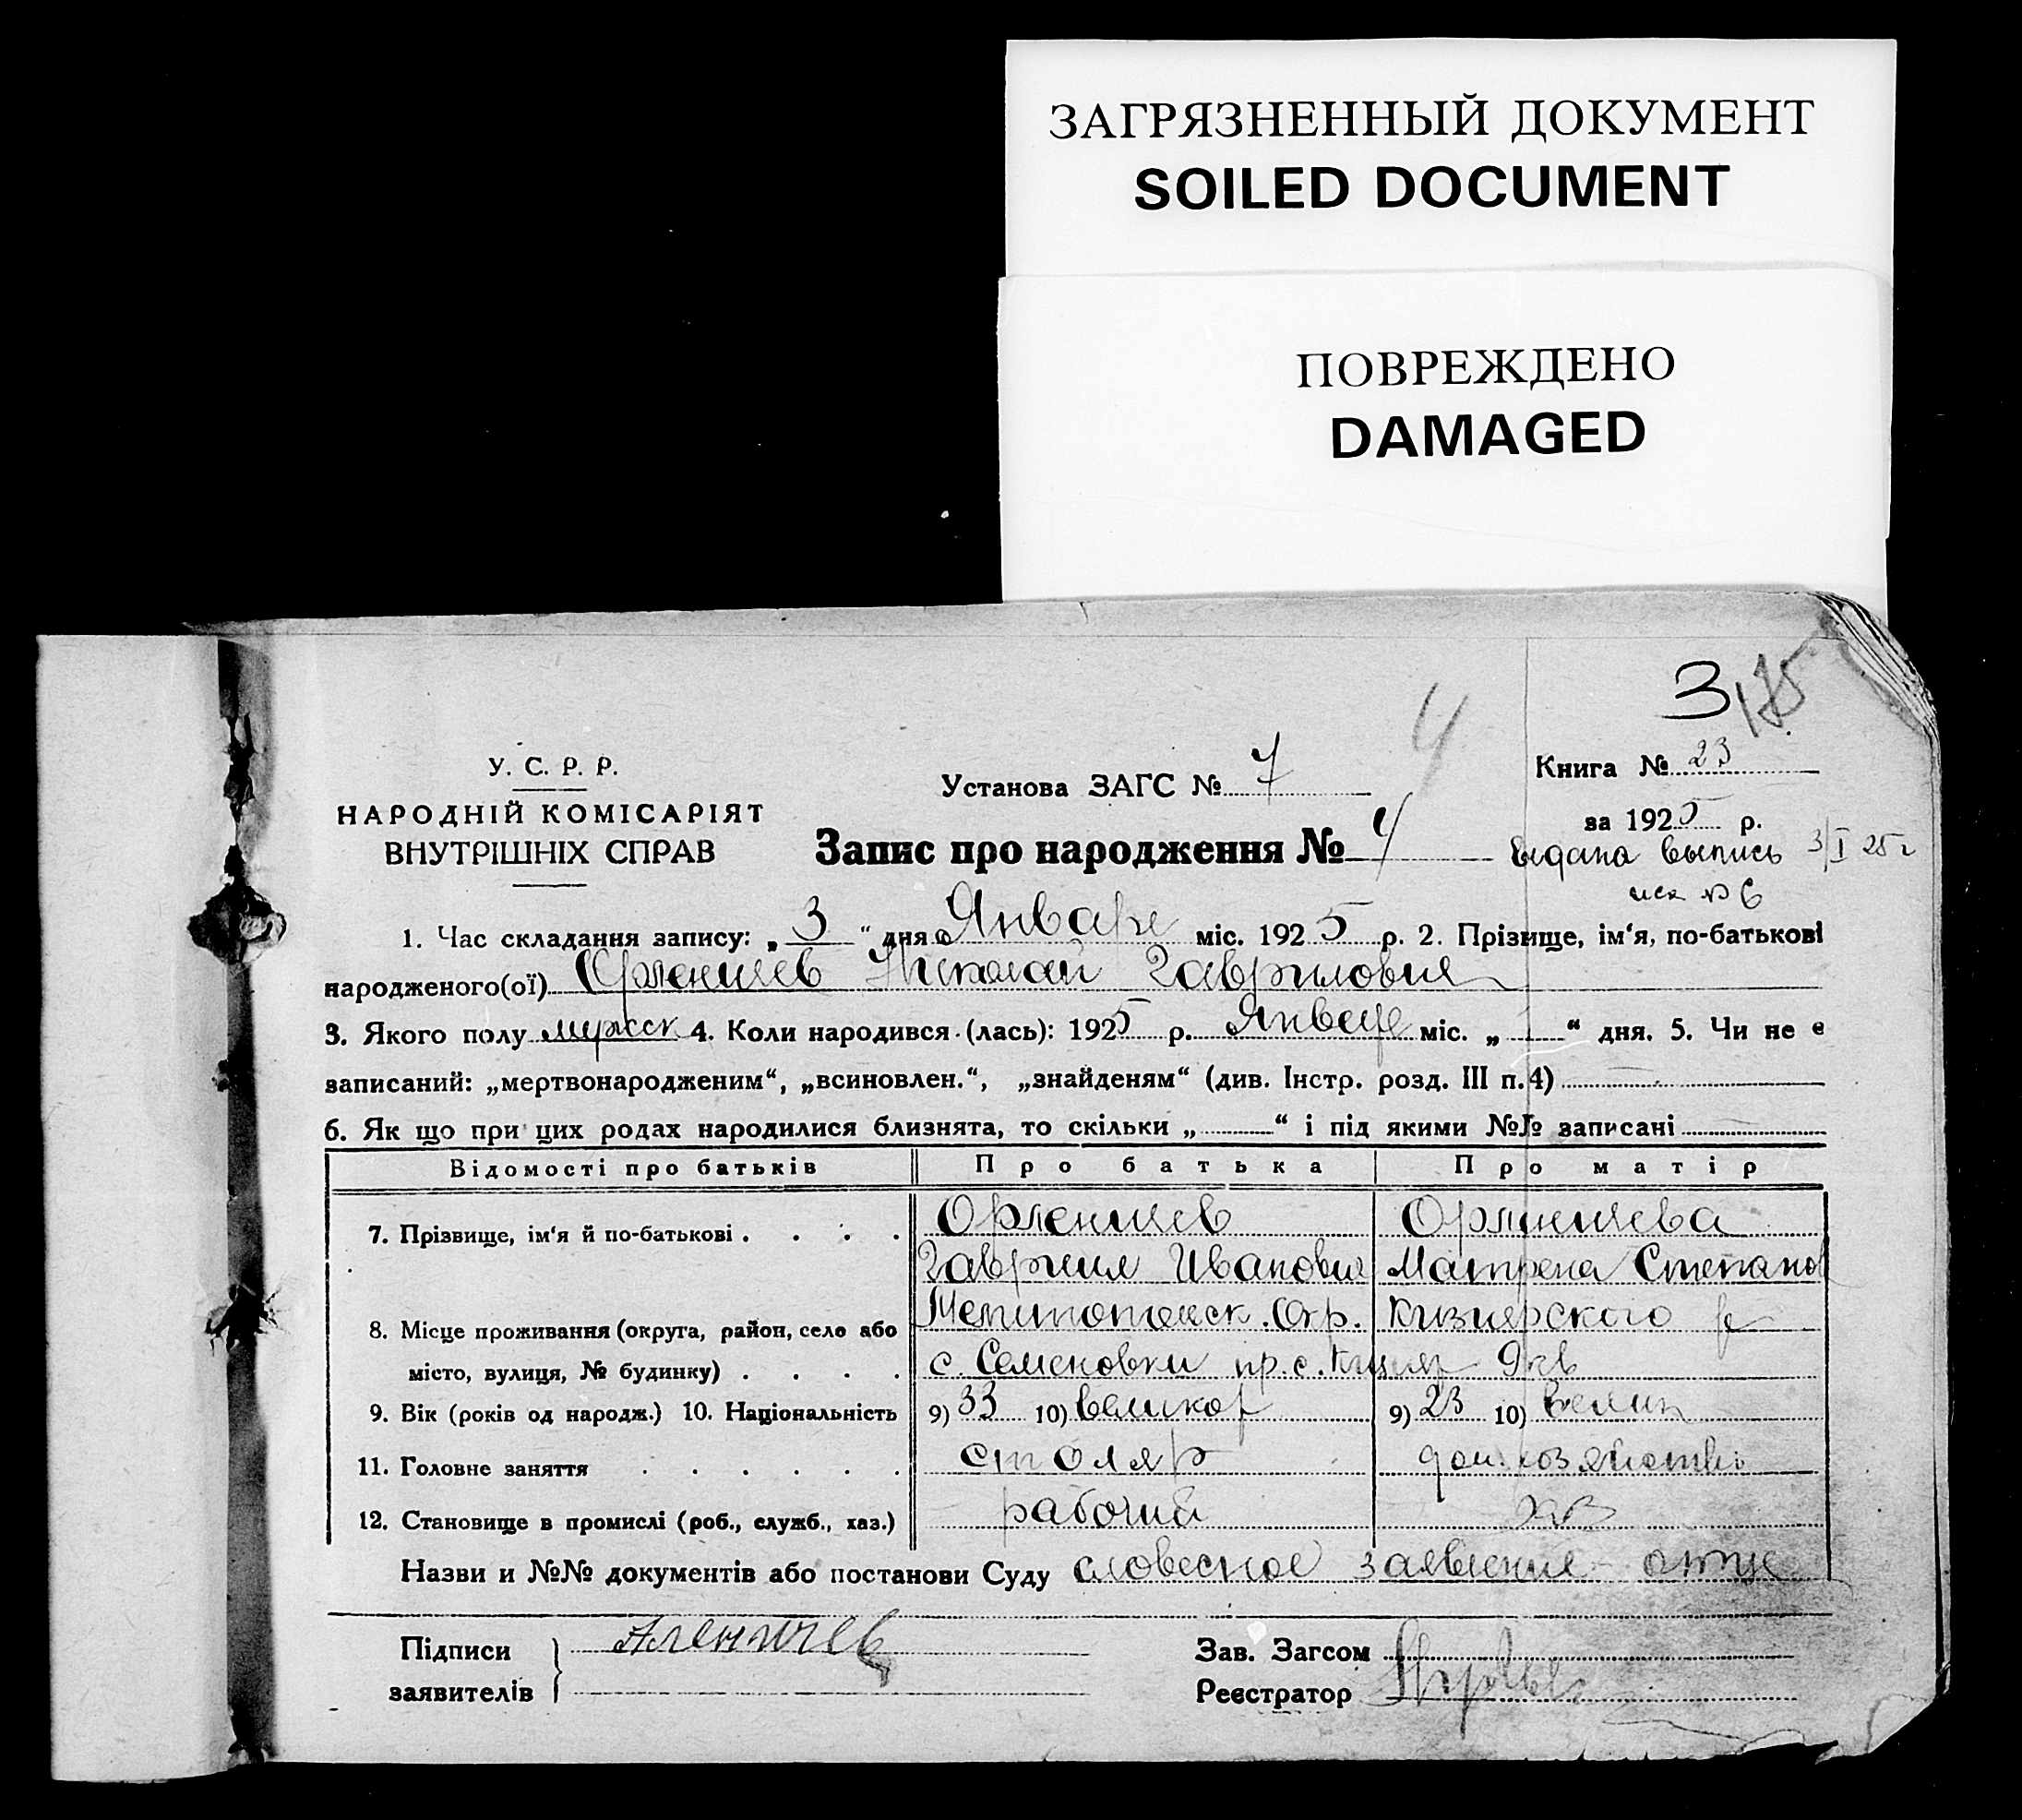 ЗАГРЯЗНЕННЫЙ ДОКУМЕНТ
SOILED DOCUMENT
ПОВРЕЖДЕНО
DAMAGED
3 175
4
У. С. Р. Р.
НАРОДНІЙ КОМІСАРІЯТ
ВНУТРІШНІХ СПРАВ
Установа ЗАГС № 7
Запис про народження № 4
Книга № 23
за 1925 р.
Выдана выпись 3/I 25 г
исх № 6
1. Час складання запису: „ 3 “ дня Января міс. 1925 р. 2. Прізвище, ім‘я, по-батькові
народженого(ої) Орленищев Николай Гаврилович
3. Якого полу мужск 4. Коли народився (лась): 1925 р. Января міс. „ 1 “ дня. 5. Чи не є
записаний: „мертвонародженим“, „всиновлен.“, „знайденям“ (див. Інстр. розд. III п. 4)
6. Як що при цих родах народилися близнята, то скільки „ “ і під якими №№ записані
Відомості про батьків Про батька Про матір
7. Прізвище, ім‘я й по-батькові Орленищев Орленищева
Гавриил Иванович Матрена Степанов
8. Місце проживання (округа, район, село або Мелитопольск. Окр. Кизиярского
місто, вулиця, № будинку) с. Семеновки пр. с. Кизияр
9. Вік (років од народж.) 10. Національність 9) 33 10) великор 9) 23 10) велик
11. Головне заняття столяр дом. хозяйство
12. Становище в промислі (роб., служб., хаз.) рабочий
Назви и №№ документів або постанови Суду словесное заявление отца
Підписи
заявителів
Зав. Загсом
Реєстратор